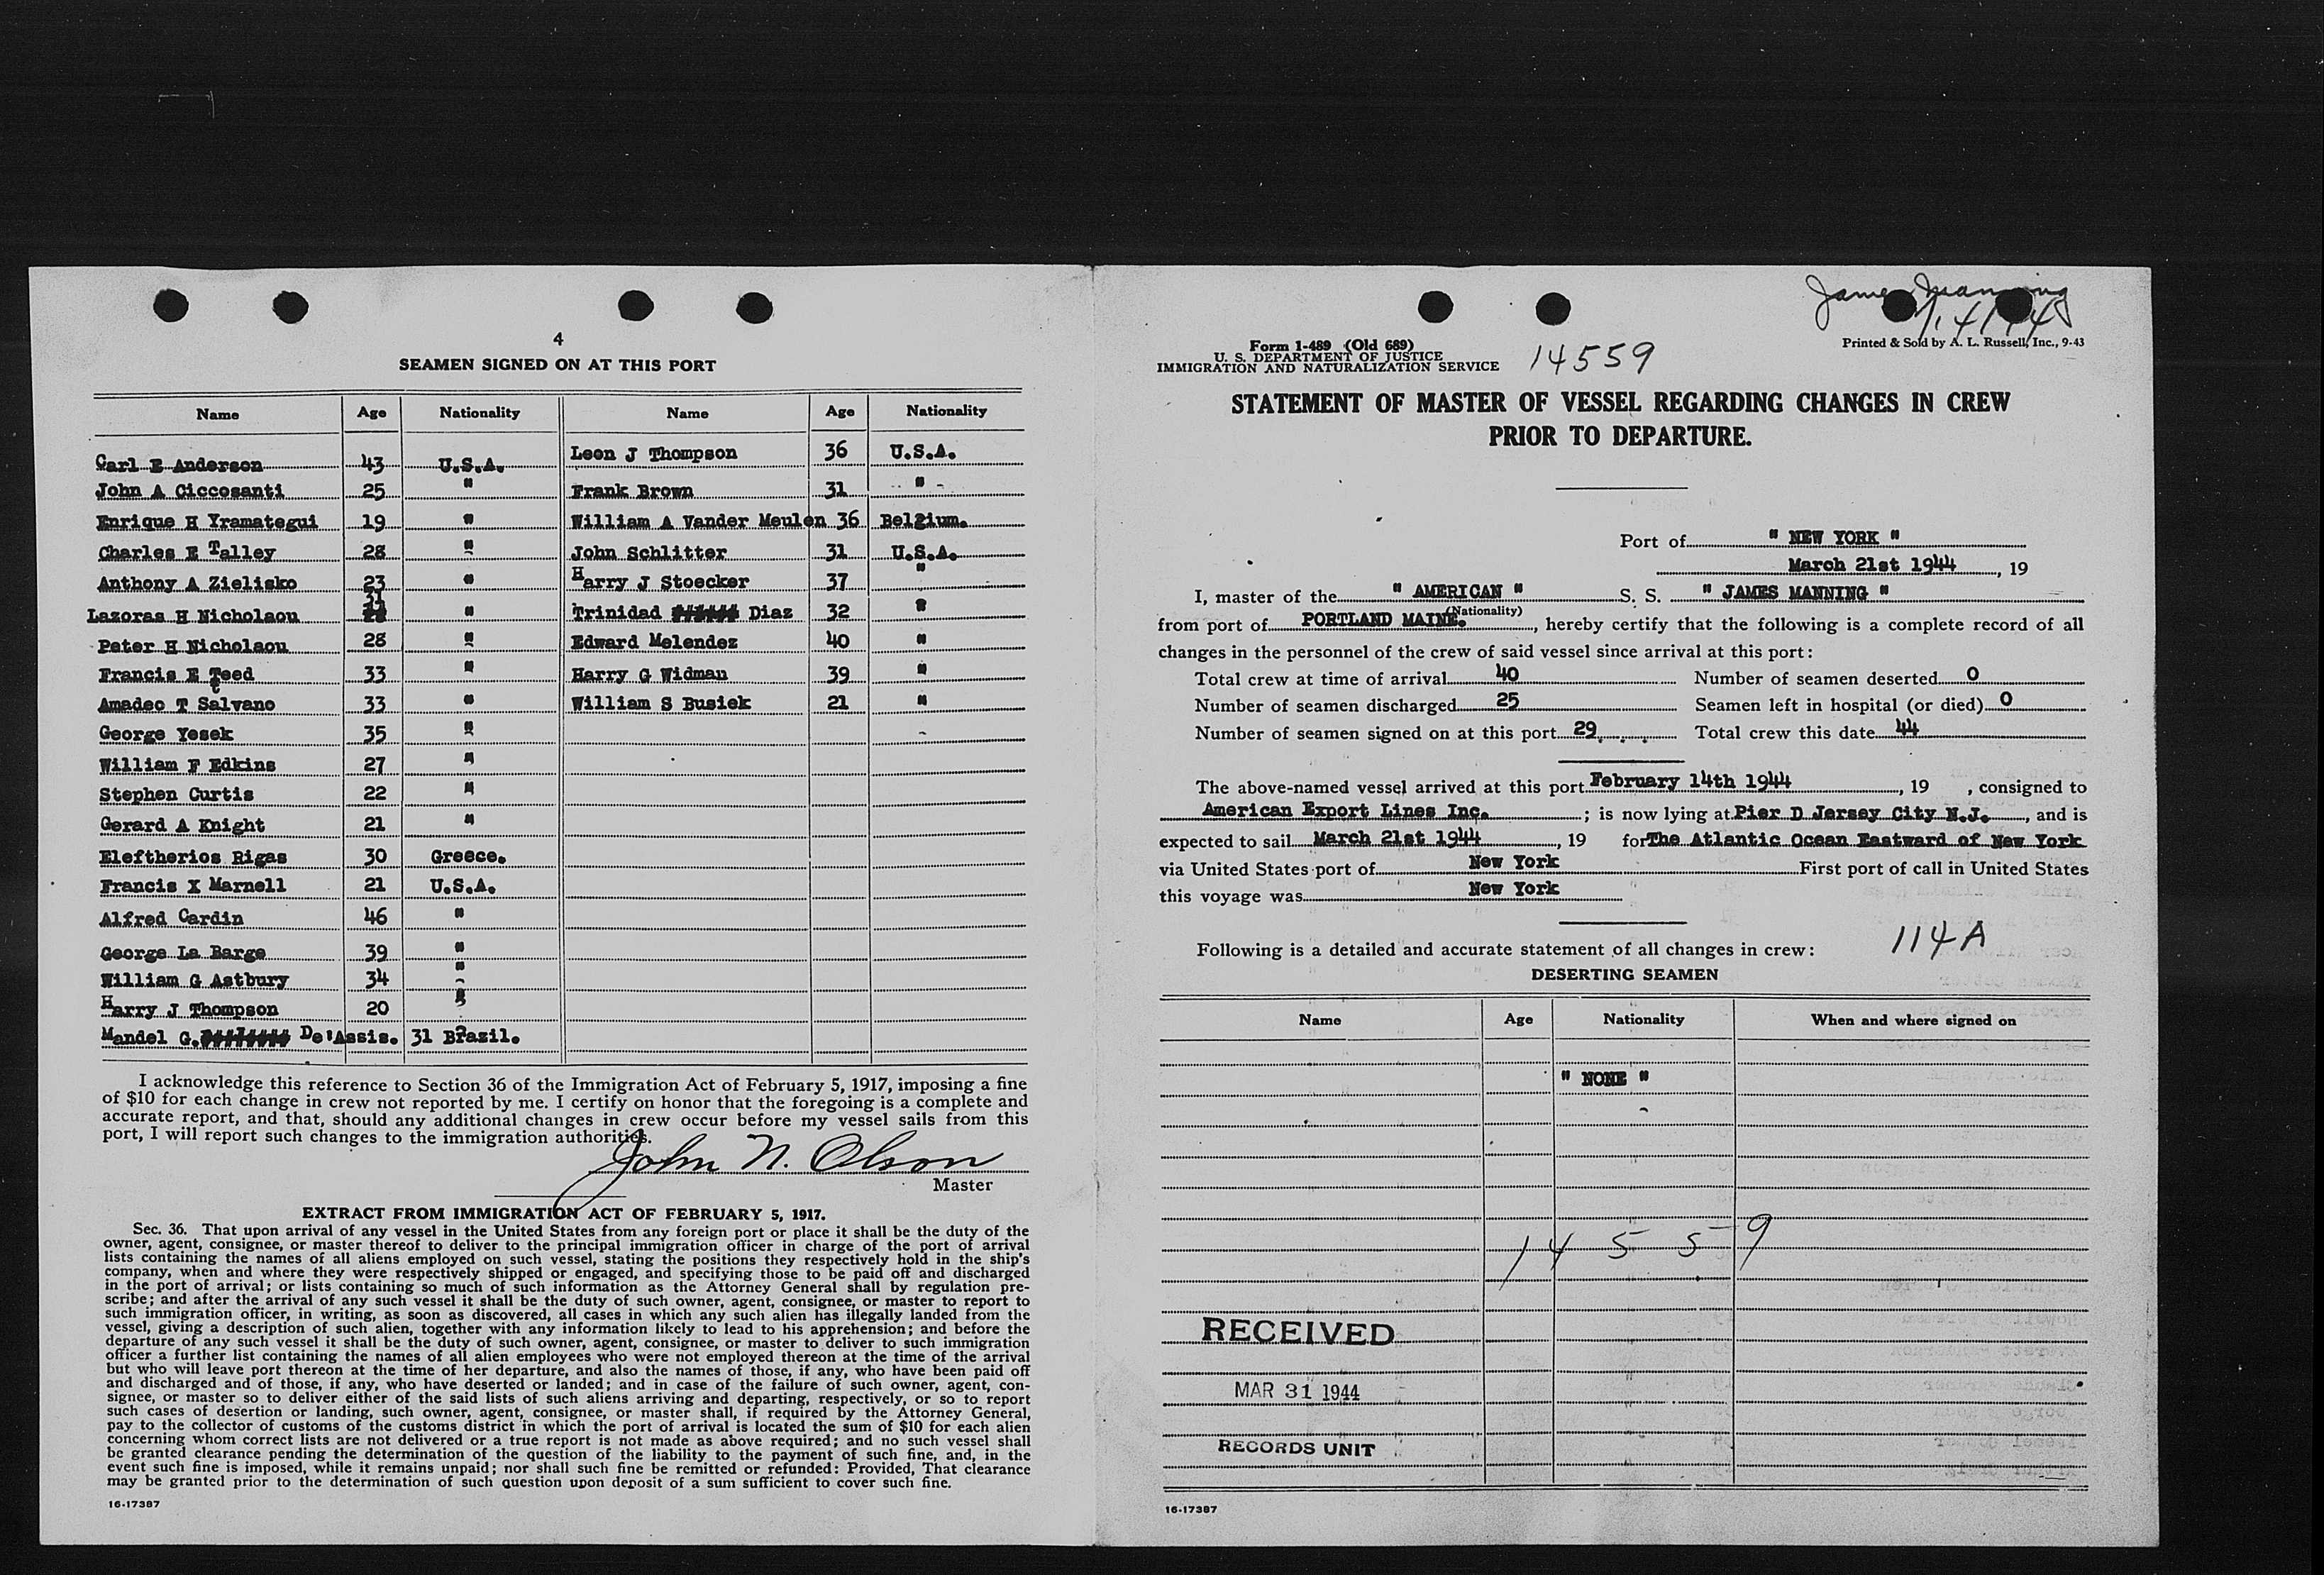 4
SEAMEN SIGNED ON AT THIS PORT
Name Age Nationality Name Age Nationality
Carl E Anderson 43 U.S.A. Leon J Thompson 36 U.S.A.
John A Ciccosanti 25 " Frank Brown 31 "
Enrique H Yramategui 19 " William A Vander Meulen 36 Belgium.
Charles E Talley 28 " John Schlitter 31 U.S.A.
Anthony A Zielisko 23 " Harry J Stoecker 37 "
Lazoras H Nicholaou 31 " Trinidad Diaz 32 "
Peter H Nicholaou 28 " Edward Melendez 40 "
Francis E Teed 33 " Harry G Widman 39 "
Amadeo T Salvano 33 " William S Busiek 21 "
George Yesek 35 "
William F Edkins 27 "
Stephen Curtis 22 "
Gerard A Knight 21 "
Eleftherios Rigas 30 Greece.
Francis X Marnell 21 U.S.A.
Alfred Cardin 46 "
George La Barge 39 "
William G Astbury 34 "
Harry J Thompson 20 "
Mandel G. De'Assis. 31 Brazil.
I acknowledge this reference to Section 36 of the Immigration Act of February 5, 1917, imposing a fine
of $10 for each change in crew not reported by me. I certify on honor that the foregoing is a complete and
accurate report, and that, should any additional changes in crew occur before my vessel sails from this
port, I will report such changes to the immigration authorities.
John N. Olson
Master
EXTRACT FROM IMMIGRATION ACT OF FEBRUARY 5, 1917.
Sec. 36. That upon arrival of any vessel in the United States from any foreign port or place it shall be the duty of the
owner, agent, consignee, or master thereof to deliver to the principal immigration officer in charge of the port of arrival
lists containing the names of all aliens employed on such vessel, stating the positions they respectively hold in the ship's
company, when and where they were respectively shipped or engaged, and specifying those to be paid off and discharged
in the port of arrival; or lists containing so much of such information as the Attorney General shall by regulation pre-
scribe; and after the arrival of any such vessel it shall be the duty of such owner, agent, consignee, or master to report to
such immigration officer, in writing, as soon as discovered, all cases in which any such alien has illegally landed from the
vessel, giving a description of such alien, together with any information likely to lead to his apprehension; and before the
departure of any such vessel it shall be the duty of such owner, agent, consignee, or master to deliver to such immigration
officer a further list containing the names of all alien employees who were not employed thereon at the time of the arrival
but who will leave port thereon at the time of her departure, and also the names of those, if any, who have been paid off
and discharged and of those, if any, who have deserted or landed; and in case of the failure of such owner, agent, con-
signee, or master so to deliver either of the said lists of such aliens arriving and departing, respectively, or so to report
such cases of desertion or landing, such owner, agent, consignee, or master shall, if required by the Attorney General,
pay to the collector of customs of the customs district in which the port of arrival is located the sum of $10 for each alien
concerning whom correct lists are not delivered or a true report is not made as above required; and no such vessel shall
be granted clearance pending the determination of the question of the liability to the payment of such fine, and, in the
event such fine is imposed, while it remains unpaid; nor shall such fine be remitted or refunded: Provided, That clearance
may be granted prior to the determination of such question upon deposit of a sum sufficient to cover such fine.
16-17387
James Manning
Form 1-489 (Old 689)
U. S. DEPARTMENT OF JUSTICE
IMMIGRATION AND NATURALIZATION SERVICE
14559
Printed & Sold by A. L. Russell, Inc., 9-43
STATEMENT OF MASTER OF VESSEL REGARDING CHANGES IN CREW
PRIOR TO DEPARTURE.
Port of " NEW YORK "
March 21st 1944, 19
I, master of the " AMERICAN " S. S. " JAMES MANNING "
(Nationality)
from port of PORTLAND MAINE., hereby certify that the following is a complete record of all
changes in the personnel of the crew of said vessel since arrival at this port:
Total crew at time of arrival 40 Number of seamen deserted 0
Number of seamen discharged 25 Seamen left in hospital (or died) 0
Number of seamen signed on at this port 29 Total crew this date 44
The above-named vessel arrived at this port February 14th 1944, 19 , consigned to
American Export Lines Inc. ; is now lying at Pier D Jersey City N.J. , and is
expected to sail March 21st 1944, 19 for The Atlantic Ocean Eastward of New York
via United States port of New York First port of call in United States
this voyage was New York
Following is a detailed and accurate statement of all changes in crew:
114A
DESERTING SEAMEN
Name Age Nationality When and where signed on
" NONE "
14559
RECEIVED
MAR 31 1944
RECORDS UNIT
16-17387